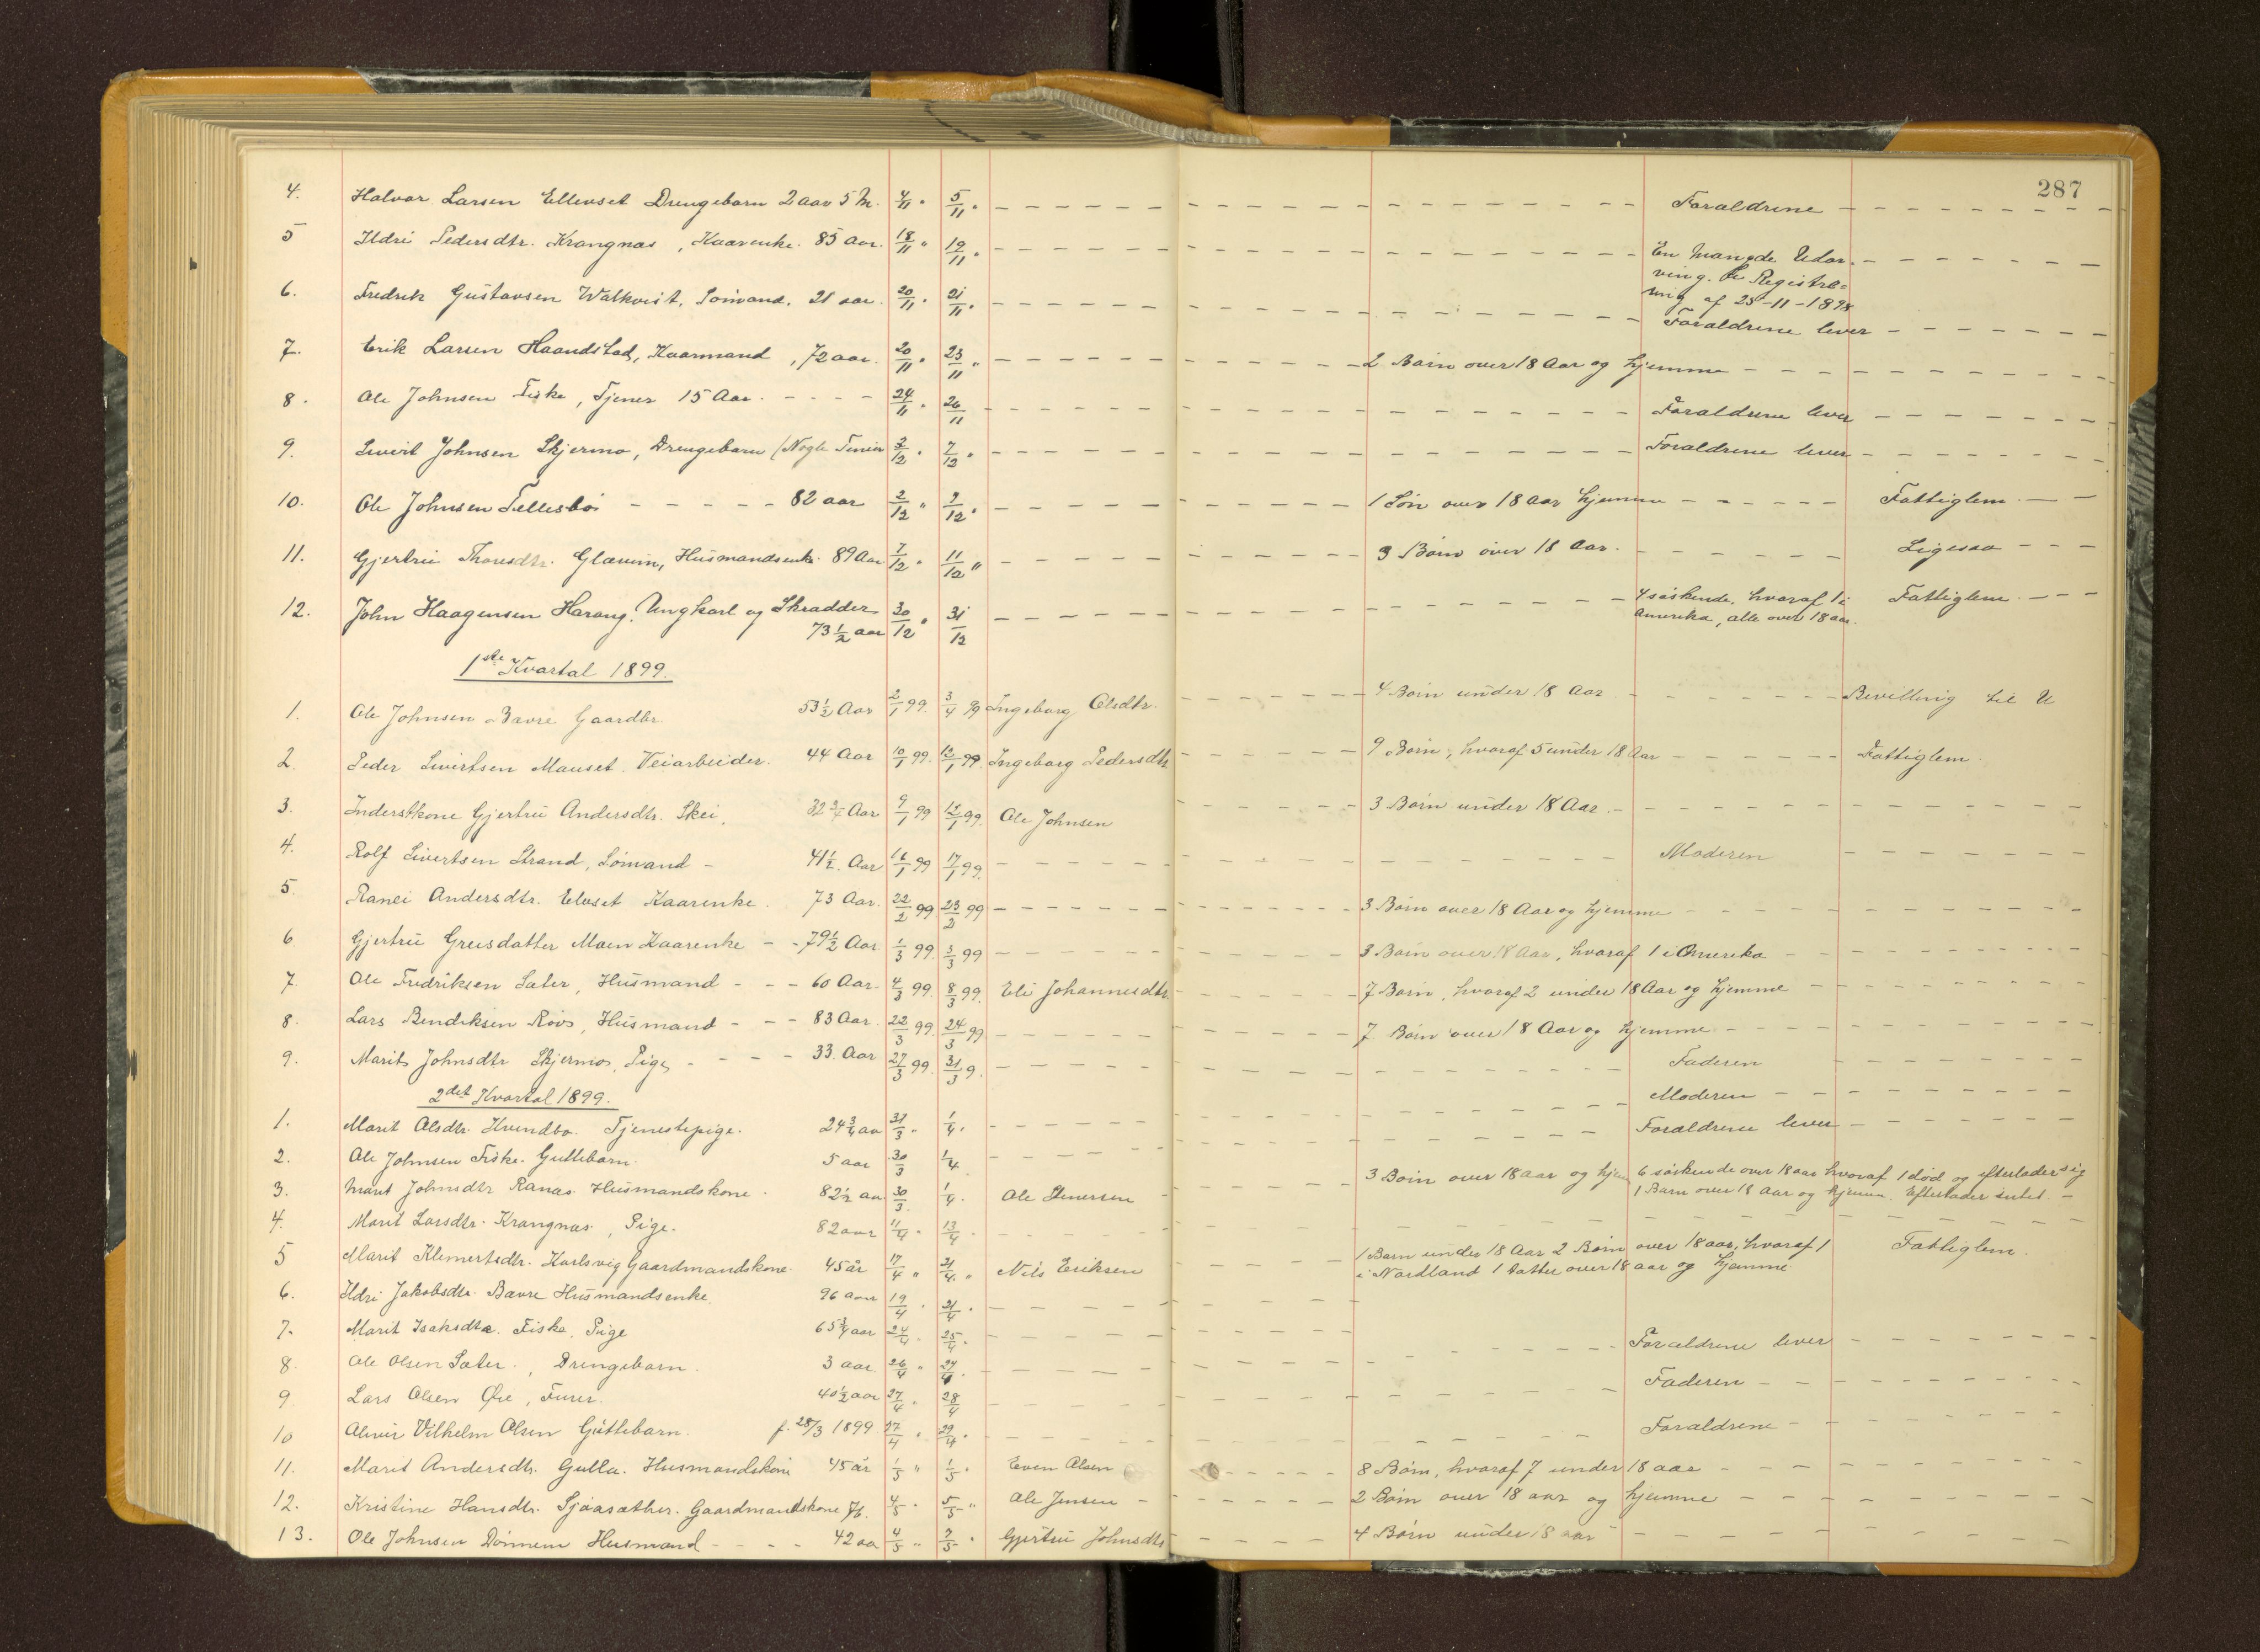 287
4. Halvor Larsen Ellevset Drengebarn 2 aar 5 M. 4/11 " 5/11 " Foraldrene
5 Ildri Pedersdtr. Krangnæs, Kaarenke. 85 Aar. 18/11 " 19/11 " En Mangde Udar-
ving. Se Registre=
ring af 25-11-1898
6. Fredrik Gustavsen Walkvist, Sømand. 21 aar. 20/11 " 21/11 " Foraldrene lever
7. Erik Larsen Haandstad, Kaarmand, 72 aar. 20/11 " 23/11 " 2 Børn over 18 Aar og hjemme
8. Ole Johnsen Fiske, Tjener 15 Aar. 24/11 " 26/11 Foraldrene lever
9. Sivert Johnsen Skjermo, Drengebarn (Nogle Timer 2/12 " 7/12 " Foraldrene lever
10. Ole Johnsen Tellesbø 82 aar 2/12 " 9/12 " 1 Søn over 18 aar hjemme Fattiglem.
11. Gjertru Thoresdtr. Glærum, Husmandsenke. 89 Aar 7/12 " 11/12 " 3 Børn over 18 Aar. Ligesaa
12. John Haagensen Harang. Ungkarl og Skradder 30/12 " 31/12 4 søskende, hvoraf 1 i Fattiglem.
73 1/2 aar Amerika, alle over 18 aar.
1ste Kvartal 1899.
1. Ole Johnsen Bavre Gaardbr. 53 1/2 Aar 2/1 99. 3/4 99 Ingeborg Olsdtr. 4 Børn under 18 Aar Bevilling til U
2. Peder Sivertsen Mauset. Veiarbeider. 44 Aar 10/1 99. 12/1 99. Ingeborg Pedersdtr 9 Børn, hvoraf 5 under 18 Aar Fattiglem.
3. Inderstkone Gjertru Andersdtr. Skei. 32 3/4 Aar 9/1 99 15/1 99. Ole Johnsen 3 Børn under 18 Aar.
4. Rolf Sivertsen Strand, Sømand 41 1/2. Aar 16/1 99 17/1 99. Moderen
5. Ranei Andersdtr. Elvset Kaarenke. 73 Aar. 22/2 99 23/2 99 3 Børn over 18 Aar og hjemme
6 Gjertru Greisdatter Moen Kaarenke 79 1/2 Aar 1/3 99. 3/3 99 3 Børn over 18 Aar, hvoraf 1 i Amerika
7. Ole Fredriksen Sæter, Husmand 60 Aar. 4/3 99. 8/3 99. Eli Johannesdtr. 7 Børn, hvoraf 2 under 18 Aar og hjemme
8. Lars Bendiksen Røvs, Husmand 83 Aar. 22/3 99. 24/3 99 7 Børn over 18 Aar og hjemme.
9. Marit Johnsdtr Skjermo, Pige, 33. Aar 27/3 99. 31/3 9. Faderen
2det Kvartal 1899.
1. Marit Olsdtr. Kvendbø. Tjenestepige. 24 3/4 aar 31/3 " 1/4 " Moderen
2. Ole Johnsen Fiske. Guttebarn. 5 aar 30/3 1/4 Foraldrene lever
3. Marit Johnsdtr Ranæs Husmandskone. 82 1/2 aar 30/3 1/4 " Ole Stenersen 3 Børn over 18 aar og hjem
4. Marit Larsdtr. Krangnæs, Pige. 82 aar 11/4 " 13/4 " 6 søskende over 18 aar hvoraf 1 død og efterlader sig
1 Barn over 18 Aar og hjemme. Efterlader intet.
5 Marit Klemertsdtr. Karlsvig Gaardmandskone. 45 år 17/4 " 21/4 " Nils Eriksen 1 Barn under 18 Aar 2 Børn over 18 aar, hvoraf 1 Fattiglem.
i Nordland 1 datter over 18 aar og hjemme
6. Ildri Jakobsdtr. Bavre Husmandsenke. 96 aar 19/4 " 21/4 "
7. Marit Isaksdtr. Fiske, Pige 65 3/4 aar 24/4 " 25/4 "
8. Ole Olsen Sæter., Drengebarn. 3 aar 26/4 " 27/4 " Foraldrene lever
9. Lars Olsen Øie, Furer. 40 1/2 aar 27/4 " 28/4 Faderen
10 Oliver Vilhelm Olsen Guttebarn. f. 28/3 1899. 27/4 " 29/4 " Foraldrene
11. Marit Andersdtr. Gulla. Husmandskone 45 år 1/5 " 1/5 " Even Olsen 8 Børn, hvoraf 7 under 18 aar
12. Kristine Hansdtr. Sjøasæther. Gaardmandskone 76. 4/5 " 5/5 " Ole Jensen 2 Børn over 18 aar og hjemme
13. Ole Johnsen Dønnem Husmand 42 aa 4/5 " 9/5 " Gjertru Johnsdtr 4 Børn under 18 aar